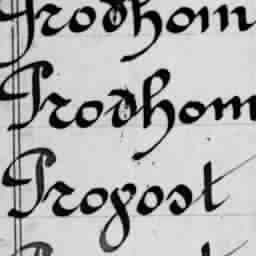 Prodhom
Prodhom
Propost